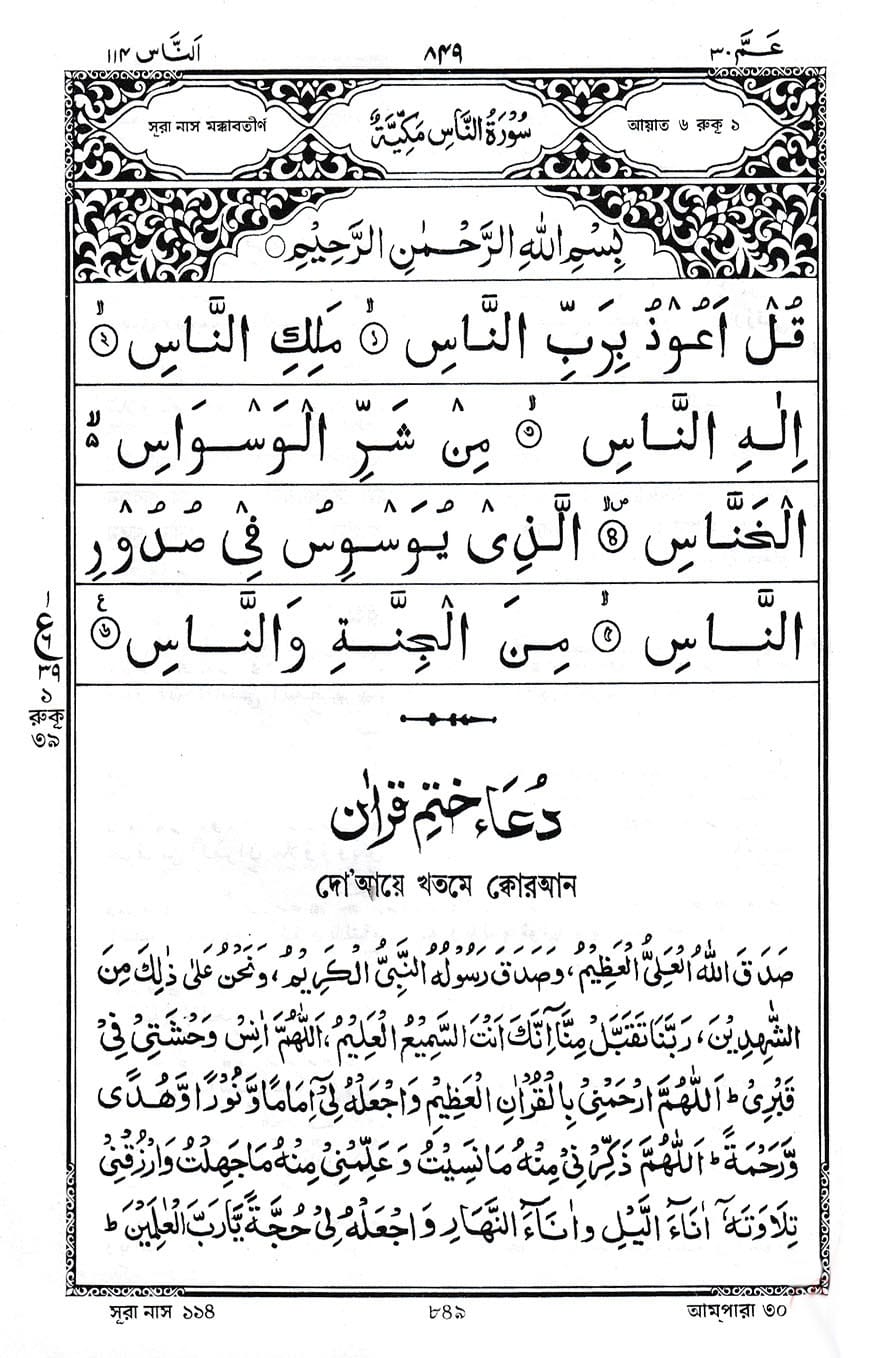 اَلنَّاس ١١٤ ٨٤٩ عَـمَّ ٣٠
সূরা নাস মক্কাবতীর্ণ سُوْرَةُ النَّاسِ مَكِّيَّةٌ আয়াত ৬ রুকূ ১
بِسْمِ اللهِ الرَّحْمٰنِ الرَّحِيْمِ
قُلْ اَعُوْذُ بِرَبِّ النَّاسِ ۙ﴿১﴾ مَلِكِ النَّاسِ ۙ﴿২﴾
اِلٰهِ النَّاسِ ۙ﴿৩﴾ مِنْ شَرِّ الْوَسْوَاسِ ۙ۬
الْخَنَّاسِ ﴿৪﴾ الَّذِىْ يُوَسْوِسُ فِىْ صُدُوْرِ
النَّاسِ ۙ﴿৫﴾ مِنَ الْجِنَّةِ وَالنَّاسِ ﴿৬﴾
ع
১
রুকূ
৩৯
دُعَاء ختمِ قراٰن
দো'আয়ে খতমে ক্বোরআন
صَدَقَ اللهُ الْعَلِىُّ الْعَظِيْمُ، وَصَدَقَ رَسُوْلُهُ النَّبِىُّ الْكَرِيْمُ، وَنَحْنُ عَلٰى ذٰلِكَ مِنَ
الشّٰهِدِيْنَ، رَبَّنَا تَقَبَّلْ مِنَّا اِنَّكَ اَنْتَ السَّمِيْعُ الْعَلِيْمُ، اَللّٰهُمَّ اٰنِسْ وَحْشَتِىْ فِىْ
قَبْرِىْ ؕ اَللّٰهُمَّ ارْحَمْنِىْ بِالْقُرْاٰنِ الْعَظِيْمِ وَاجْعَلْهُ لِىْٓ اِمَامًا وَّنُوْرًا وَّهُدًى
وَّرَحْمَةً ؕ اَللّٰهُمَّ ذَكِّرْنِىْ مِنْهُ مَا نَسِيْتُ وَعَلِّمْنِىْ مِنْهُ مَا جَهِلْتُ وَارْزُقْنِىْ
تِلَاوَتَهٗٓ اٰنَآءَ الَّيْلِ وَاٰنَآءَ النَّهَارِ وَاجْعَلْهُ لِىْ حُجَّةً يَّا رَبَّ الْعٰلَمِيْنَ ؕ
সূরা নাস ১১৪ ৮৪৯ আম্পারা ৩০